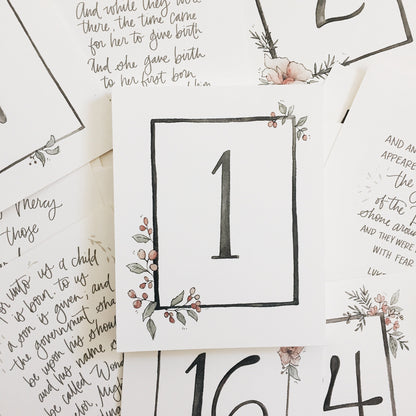 And while they were
there, the time came
for her to give birth
and she gave birth
to her first born
2
1
mercy
those
for unto us a child
is born, to us
a son is given; and
the government sha
be upon his should
and his name s
be called Wond
16
4
AND AN
APPEARE
the
of the
shone aroun
AND THEY WERE
WITH FEAR
LU